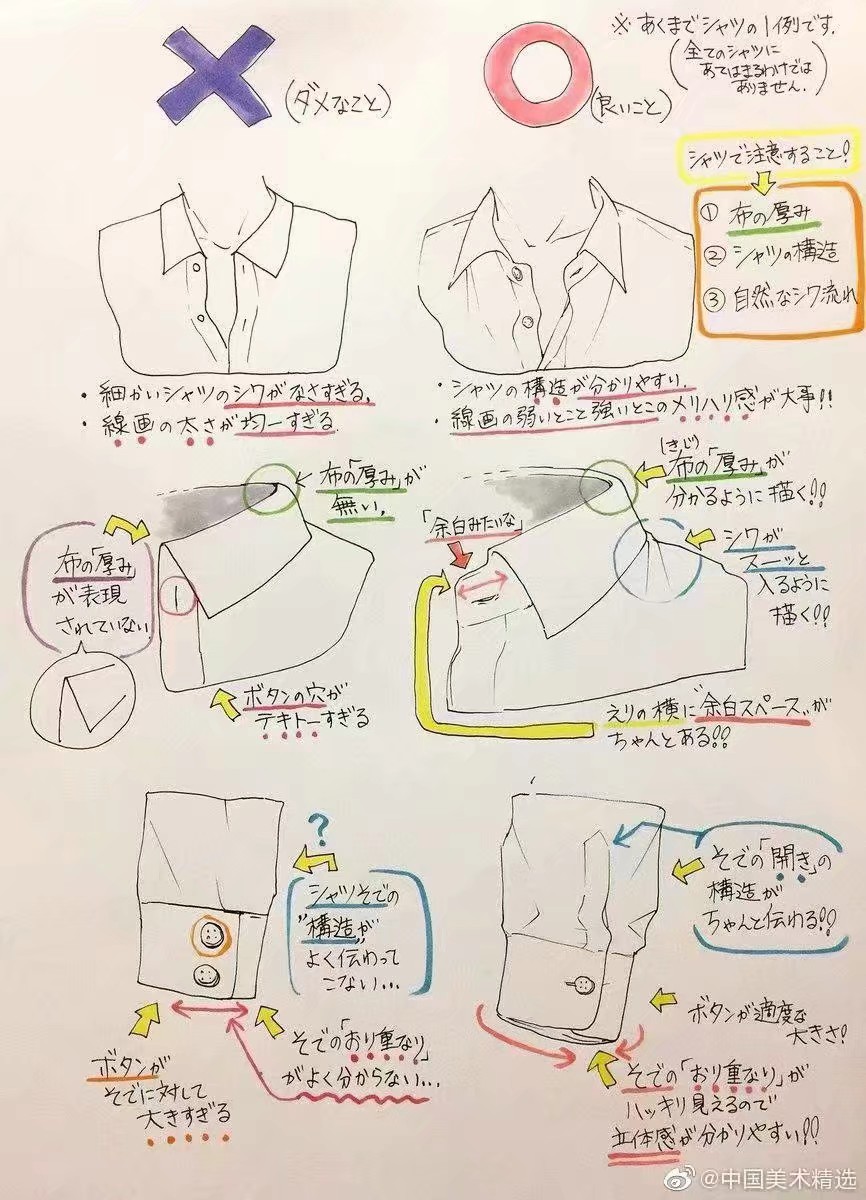 ※あくまでシャツの1例です.
(全てのシャツに
あてはまるわけでは
ありません.)
(ダメなこと)
(良いこと)
シャツで注意すること!
① 布の厚み
② シャツの構造
③ 自然なシワ流れ
・細かいシャツのシワがなさすぎる.
・線画の太さが均一すぎる.
・シャツの構造が分かりやすい.
・線画の弱いとこと強いとこのメリハリ感が大事!!
布の「厚み」が
無い.
布の「厚み」
が表現
されていない
ボタンの穴が
テキトーすぎる
(きじ)
布の「厚み」が
分かるように描く!!
「余白みたいな」
シワが
スーッと
入るように
描く!!
えりの横に"余白スペース"が
ちゃんとある!!
?
シャツそでの
"構造"が
よく伝わって
こない...
ボタンが
そでに対して
大きすぎる
そでの「おり重なり」
がよく分からない...
そでの「開き」の
構造が
ちゃんと伝わる!!
ボタンが適度な
大きさ!
そでの「おり重なり」が
ハッキリ見えるので
立体感が分かりやすい!!
@中国美术精选